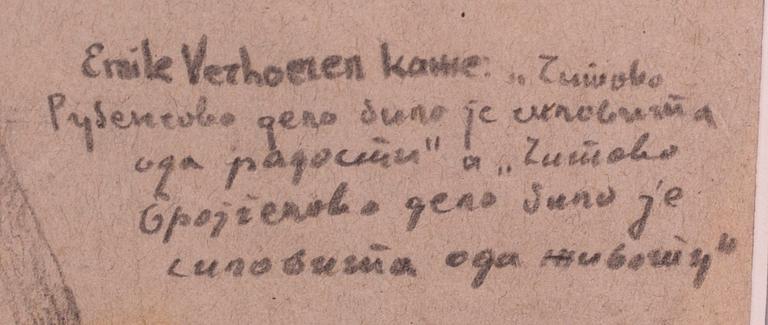 Emile Verhoeren каже: „Читаво
Рубенсово дело било је силовита
ода радости" а „Читаво
Бројгелово дело било је
силовита ода животу"